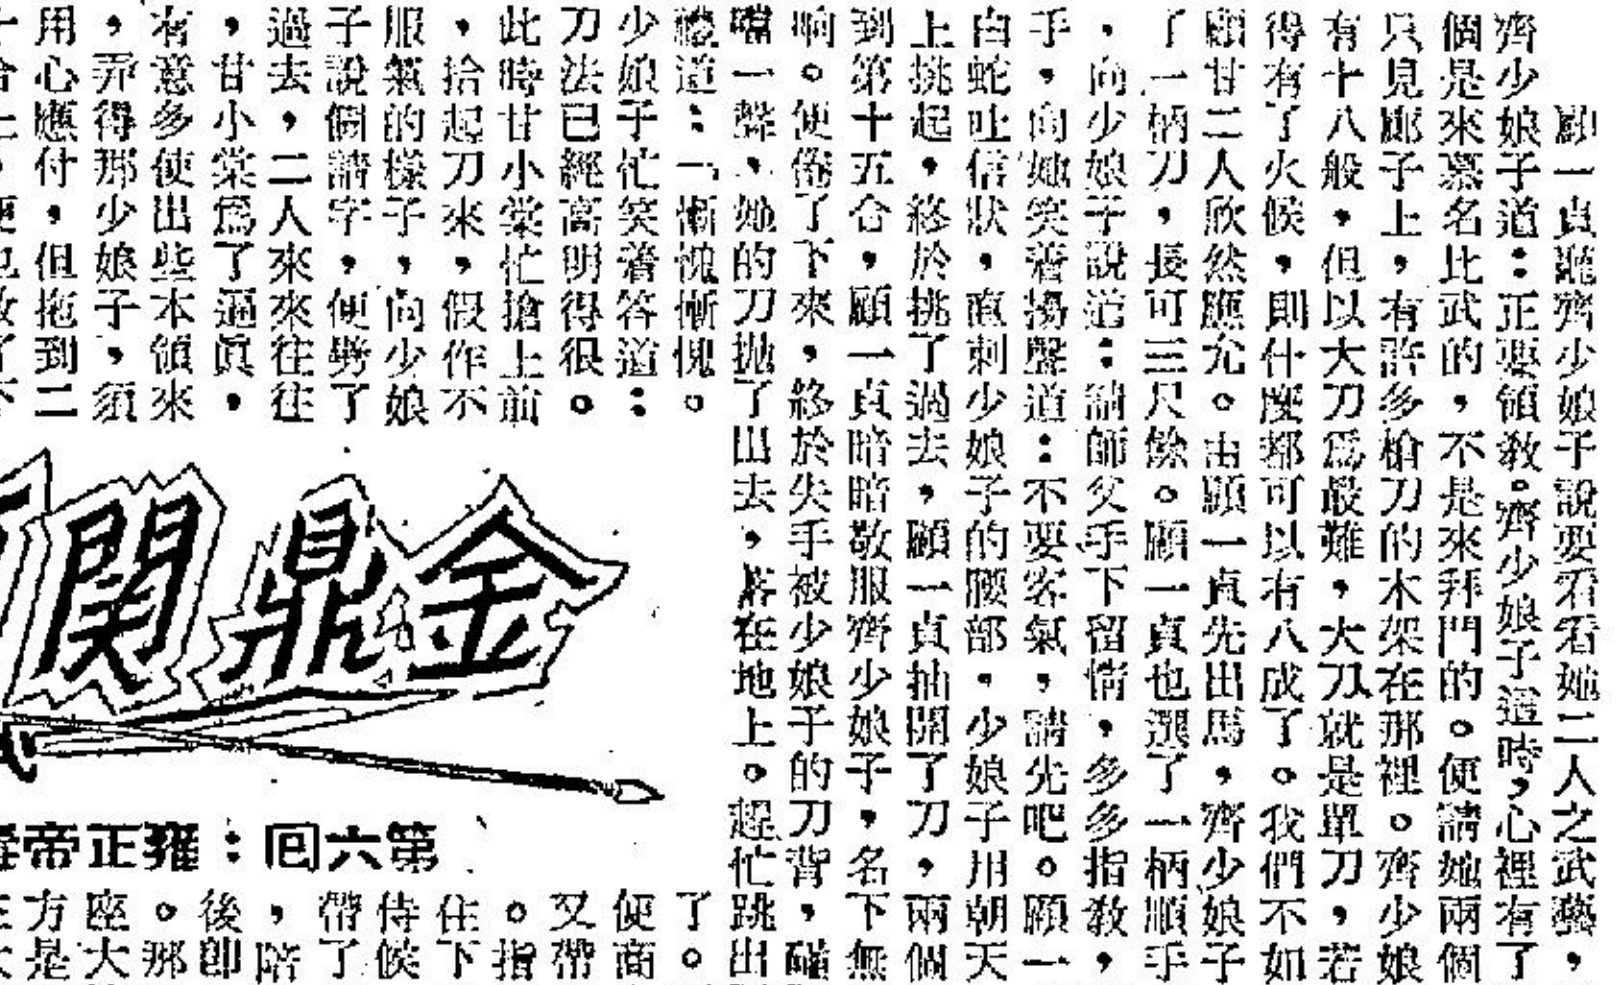 顧一貞聽齊少娘子說要看看她二人之武藝，
齊少娘子道：正要領敎。齊少娘子這時，心裡有了
個是來慕名比武的，不是來拜門的。便請她兩個
只見廊子上，有許多槍刀的木架在那裡。齊少娘
有十八般，但以大刀爲最難，大刀就是單刀，若
得有了火候，則什麼都可以有八成了。我們不如
顧甘二人欣然應允。由顧一貞先出馬，齊少娘子
了一柄刀，長可三尺餘。顧一貞也選了一柄順手
，向少娘子說道：請師父手下留情，多多指敎，
手，向她笑着揚聲道：不要客氣，請先吧。顧一
白蛇吐信狀，直刺少娘子的腰部，少娘子用朝天
上挑起，終於挑了過去，顧一貞抽開了刀，兩個
到第十五合，顧一貞暗暗敬服齊少娘子，名下無
响。便倦了下來，終於失手被少娘子的刀背，磕
噹一聲，她的刀拋了出去，落在地上。趕忙跳出
禮道：「慚愧慚愧。
少娘子忙笑着答道：
刀法已經高明得很。
此時甘小棠忙搶上前
，拾起刀來，假作不
服氣的樣子，向少娘
子說個請字，便劈了
過去，二人來來往往
，甘小棠爲了逼眞，
有意多使出些本領來
，弄得那少娘子，須
用心應付，但拖到二
金鼎関
第六回：雍正帝
了。
便商
又帶
。指
住下
侍候
帶了
，陪
後即
。那
座大
方是